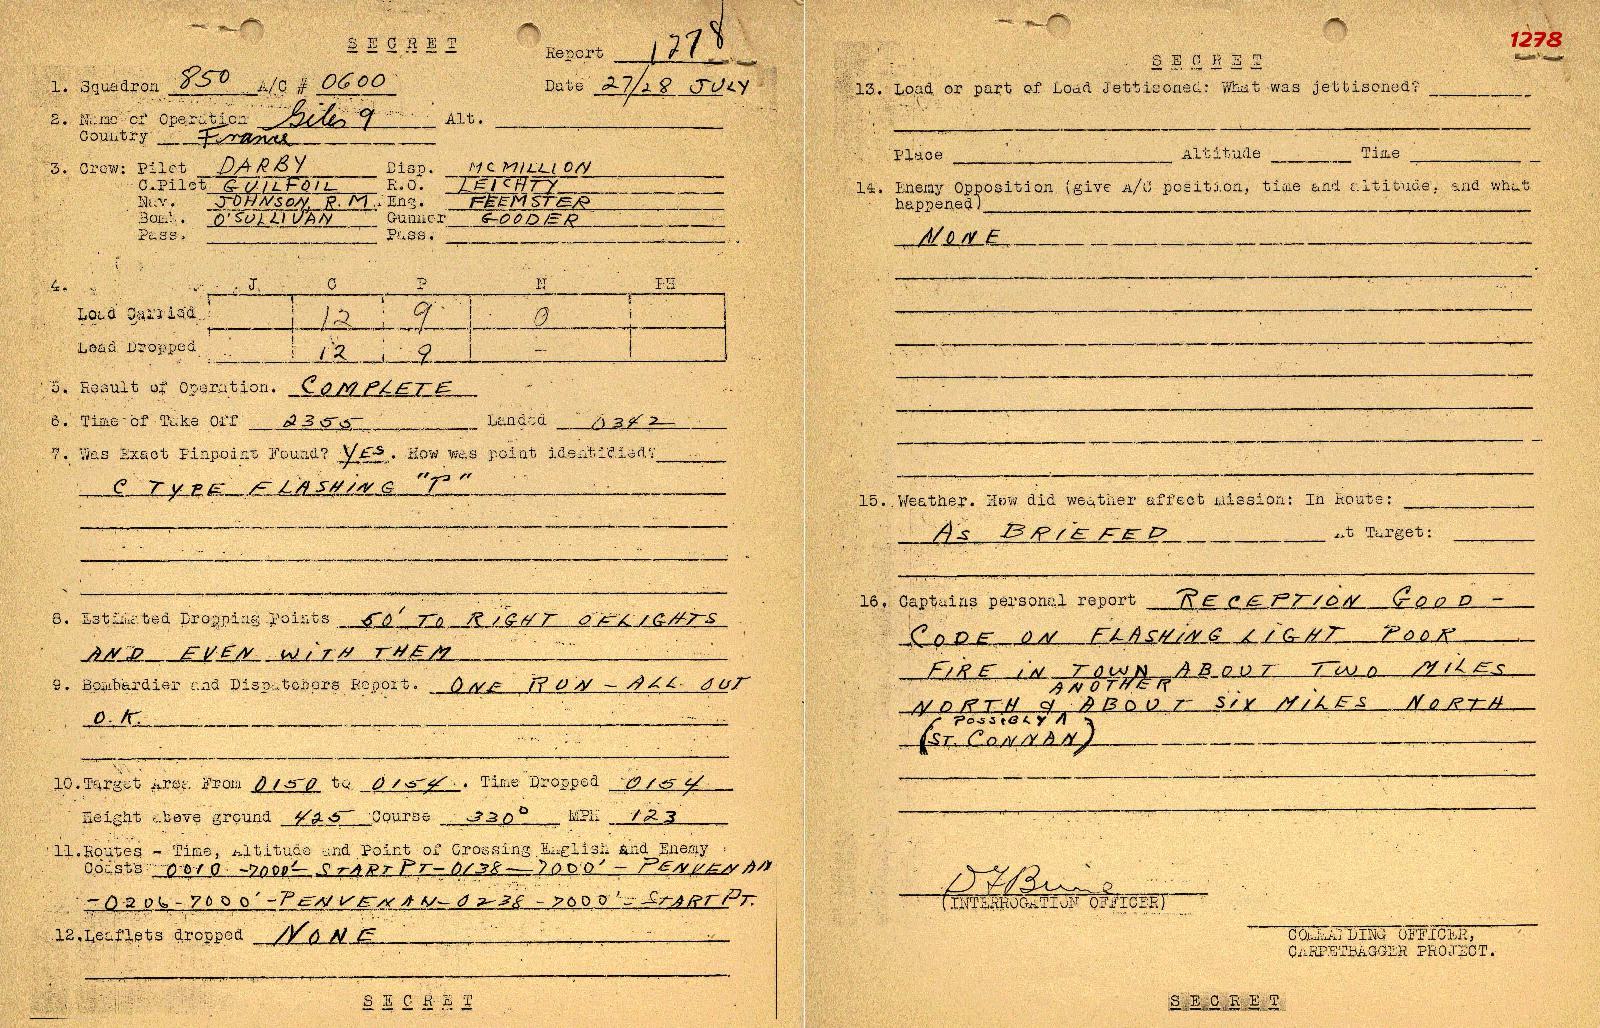 SECRET
Report 1278
1. Squadron 850 A/C # 0600 Date 27/28 JULY
2. Name of Operation Giles 9 Alt.
Country France
3. Crew: Pilot DARBY Disp. MCMILLION
C.Pilot GUILFOIL R.O. LEICHTY
Nav. JOHNSON, R.M. Eng. FEEMSTER
Bomb. O'SULLIVAN Gunner GOODER
Pass. Pass.
4. J C P N PH
Load Carried 12 9 0
Load Dropped 12 9 -
5. Result of Operation. COMPLETE
6. Time of Take Off 2355 Landed 0342
7. Was Exact Pinpoint Found? YES. How was point identidied?
C TYPE FLASHING "P"
8. Estimated Dropping Points 50' TO RIGHT OF LIGHTS
AND EVEN WITH THEM
9. Bombardier and Dispatchers Report. ONE RUN - ALL OUT
O.K.
10. Target Area From 0150 to 0154. Time Dropped 0154
Height above ground 425 Course 330° MPH 123
11. Routes - Time, Altitude and Point of Crossing English and Enemy
Coasts 0010 -7000'- START PT-0138-7000'- PENVENAN
-0206-7000'-PENVENAN-0238-7000'-START PT.
12. Leaflets dropped NONE
SECRET
1278
SECRET
13. Load or part of Load Jettisoned: What was jettisoned?
Place Altitude Time
14. Enemy Opposition (give A/C position, time and altitude, and what
happened)
NONE
15. Weather. How did weather affect mission: In Route:
AS BRIEFED At Target:
16. Captains personal report RECEPTION GOOD -
CODE ON FLASHING LIGHT POOR
FIRE IN TOWN ABOUT TWO MILES
NORTH & ANOTHER ABOUT SIX MILES NORTH
(POSSIBLY
ST. CONNAN)
(INTERROGATION OFFICER)
COMMANDING OFFICER,
CARPETBAGGER PROJECT.
SECRET